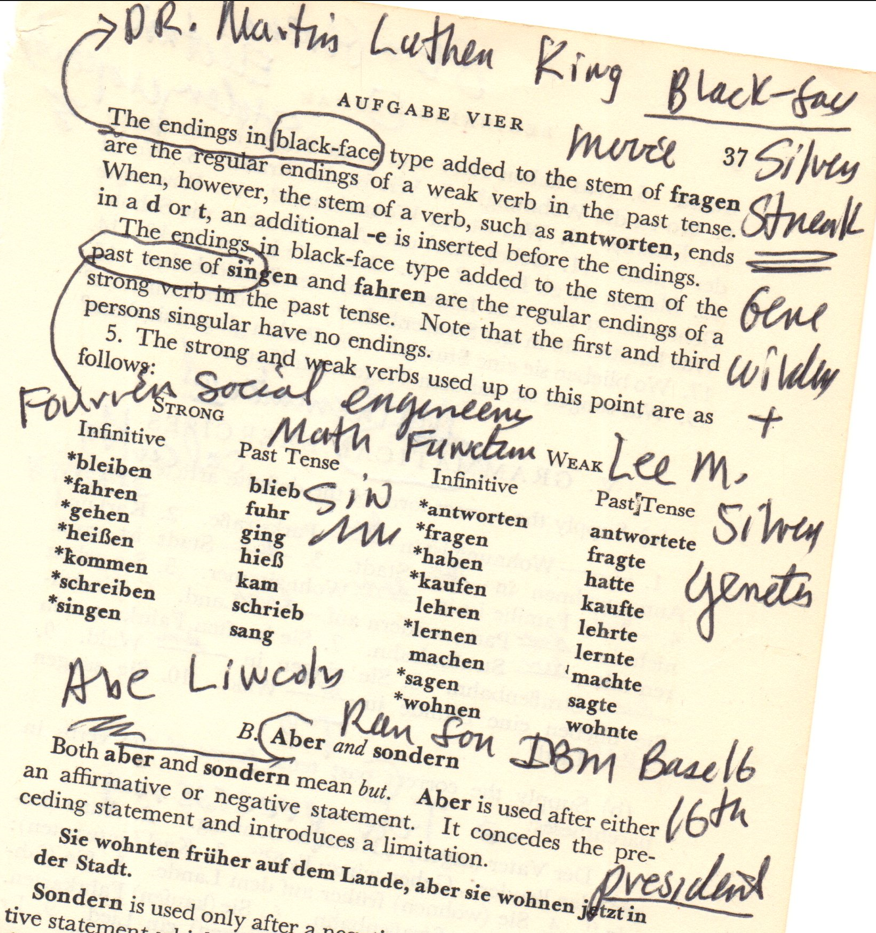 DR. Martin Luther King Black-face
AUFGABE VIER
movie 37 Silver
Streak
The endings in black-face type added to the stem of fragen
are the regular endings of a weak verb in the past tense.
When, however, the stem of a verb, such as antworten, ends
in a d or t, an additional -e is inserted before the endings.
The endings in black-face type added to the stem of the
past tense of singen and fahren are the regular endings of a
strong verb in the past tense. Note that the first and third
persons singular have no endings.
Gene
Wilder
+
5. The strong and weak verbs used up to this point are as
follows:
Fourier in Social engineering
Math Function Lee M.
STRONG WEAK
Infinitive Past Tense Infinitive Past Tense
*bleiben blieb *antworten antwortete
*fahren fuhr *fragen fragte
*gehen ging *haben hatte
*heißen hieß *kaufen kaufte
*kommen kam lehren lehrte
*schreiben schrieb *lernen lernte
*singen sang machen machte
*sagen sagte
*wohnen wohnte
Sin
Silver
genetics
Abe Lincoln
B. Aber and sondern
Base16
16th
president
Both aber and sondern mean but. Aber is used after either
an affirmative or negative statement. It concedes the pre-
ceding statement and introduces a limitation.
Sie wohnten früher auf dem Lande, aber sie wohnen jetzt in
der Stadt.
Sondern is used only after a
tive statement